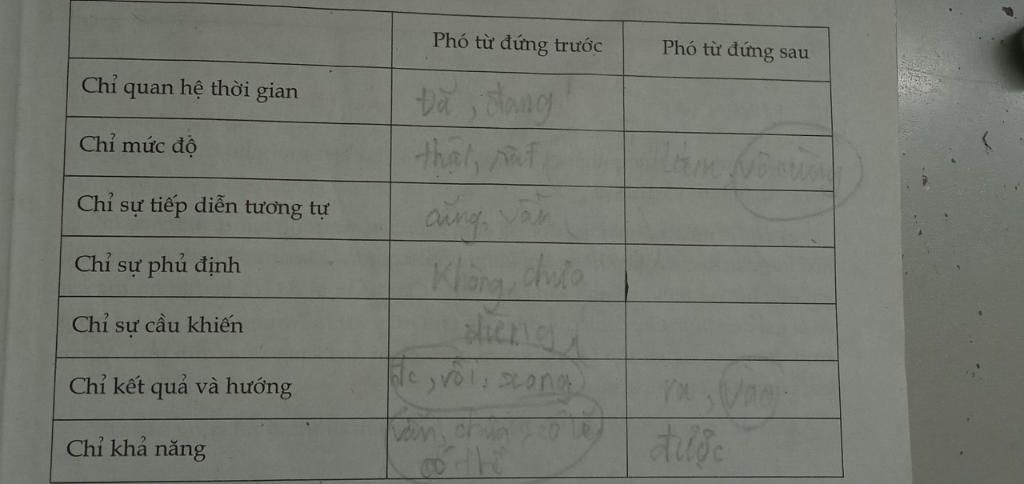 Phó từ đứng trước Phó từ đứng sau
Chỉ quan hệ thời gian Đã, đang
Chỉ mức độ thật, rất lắm, vô cùng
Chỉ sự tiếp diễn tương tự cũng, vẫn
Chỉ sự phủ định Không, chưa
Chỉ sự cầu khiến đừng
Chỉ kết quả và hướng đc, rồi, xong ra, vào
vẫn, chưa, có lẽ
Chỉ khả năng có thể được